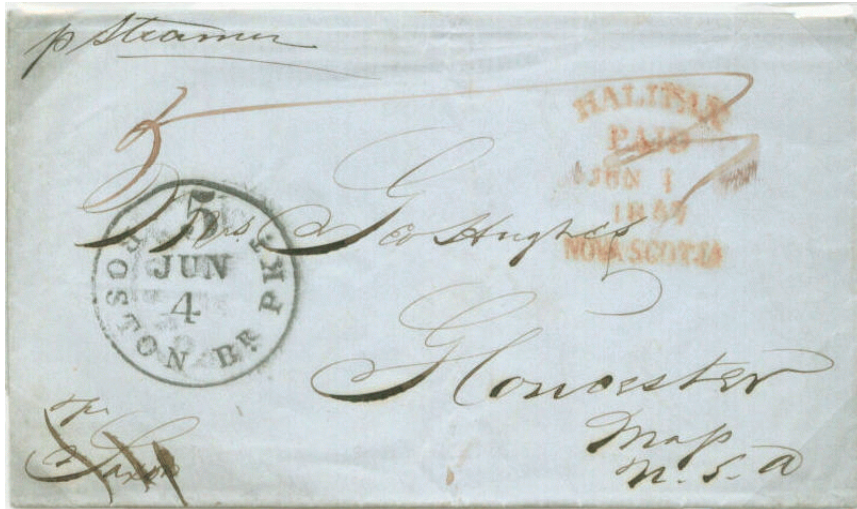 p Steamer
5
HALIFAX
PAID
JUN 1
1857
NOVA SCOTIA
5
JUN
4
BOSTON BR. PKT.
Mrs. Geo Hughes
Gloucester
Mass
U. S. A
Saxon